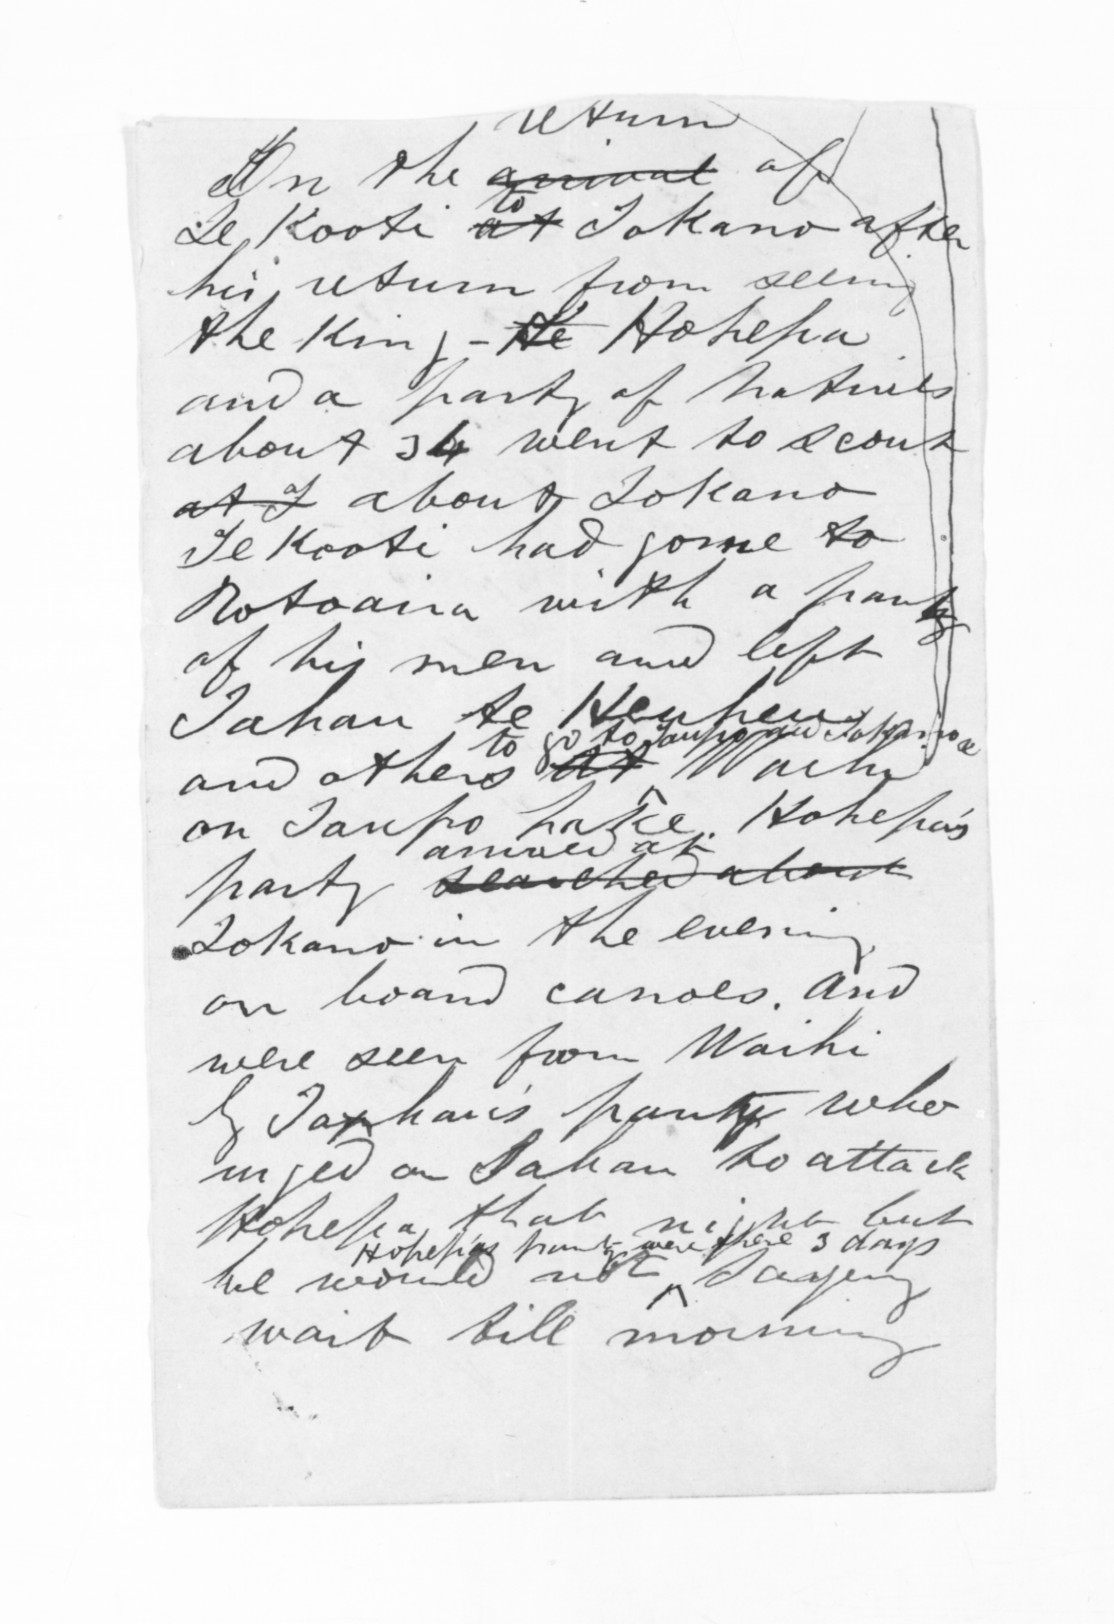 return
On the arrival of
Te Kooti at to Tokano after
his return from seeing
the King - He Hohepa
and a party of Natives
about 34 went to scout
at T about Tokano
Te Kooti had gone to
Rotoaira with a party
of his men and left
Tahau te Heuheu
to go to Taupo and Tokano
and others at Waihi
on Taupo Lake. Hohepa's
arrived at
party searched about
Tokano in the evening
on board canoes. And
were seen from Waihi
by Tahau's party who
urged on Tahau to attack
Hohepa that night but
Hohepa's party were there 3 days
he would not Saying
wait till morning